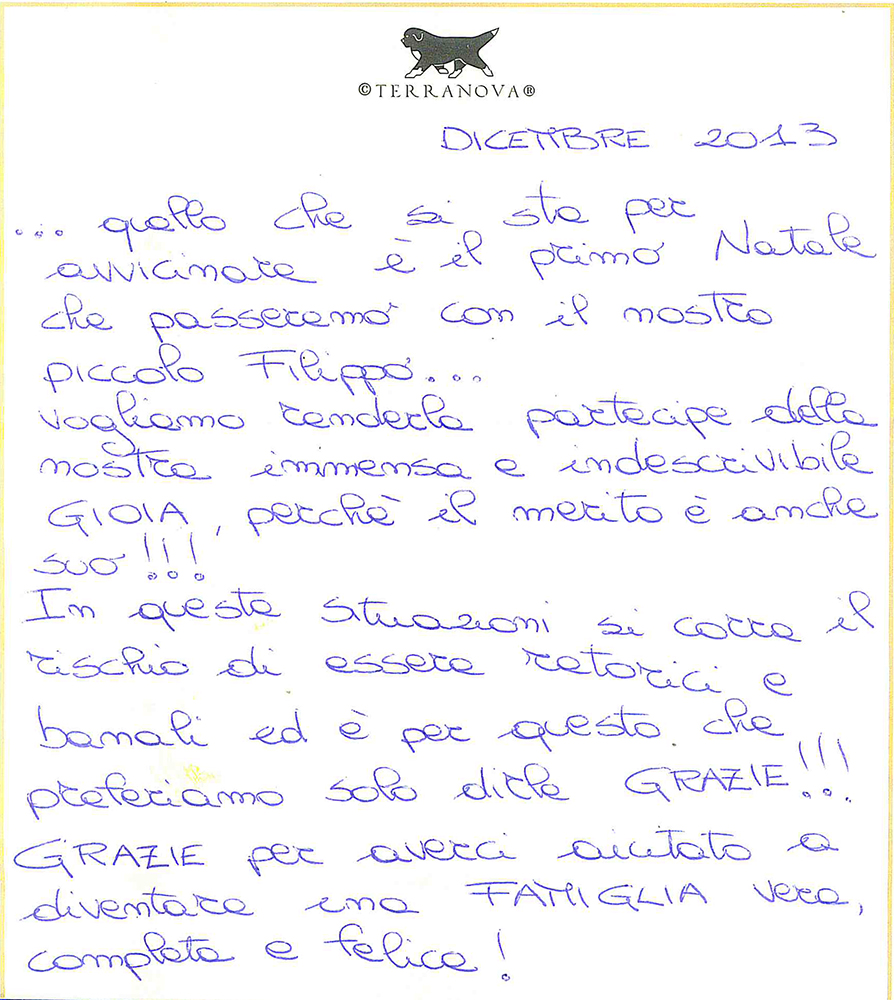 ©TERRANOVA®
DICEMBRE 2013
... quello che si sta per
avvicinare è il primo Natale
che passeremo con il nostro
piccolo Filippo...
vogliamo renderla partecipe della
nostra immensa e indescrivibile
GIOIA, perchè il merito è anche
suo!!!
In queste situazioni si corre il
rischio di essere retorici e
banali ed è per questo che
preferiamo solo dirle GRAZIE!!!
GRAZIE per averci aiutato a
diventare una FAMIGLIA vera,
completa e felice!